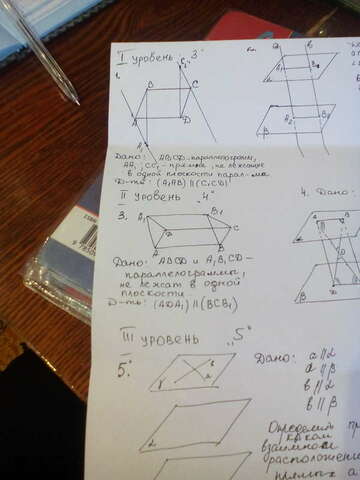 I уровень „3"
1.
B
C₁
C
A
D
A₁
Дано: ABCD-параллелограмм,
AA₁ ∥ CC₁ - прямые, не лежащие
в одной плоскости парал-ма.
Д-ть: (A₁AB) ∥ (C₁CD)
a
b
A₁
B₁
A₂
B₂
β
II уровень „4"
3.
A₁
B₁
D
C
A
B
Дано: ABCD и A₁B₁CD -
параллелограммы,
не лежат в одной
плоскости
Д-ть: (ADA₁) ∥ (BCB₁)
4. Дано:
III уровень „5"
5.
γ
α
Дано: a ∥ α
a ∥ β
b ∥ α
b ∥ β
Определить
взаимное
расположение
прямых a